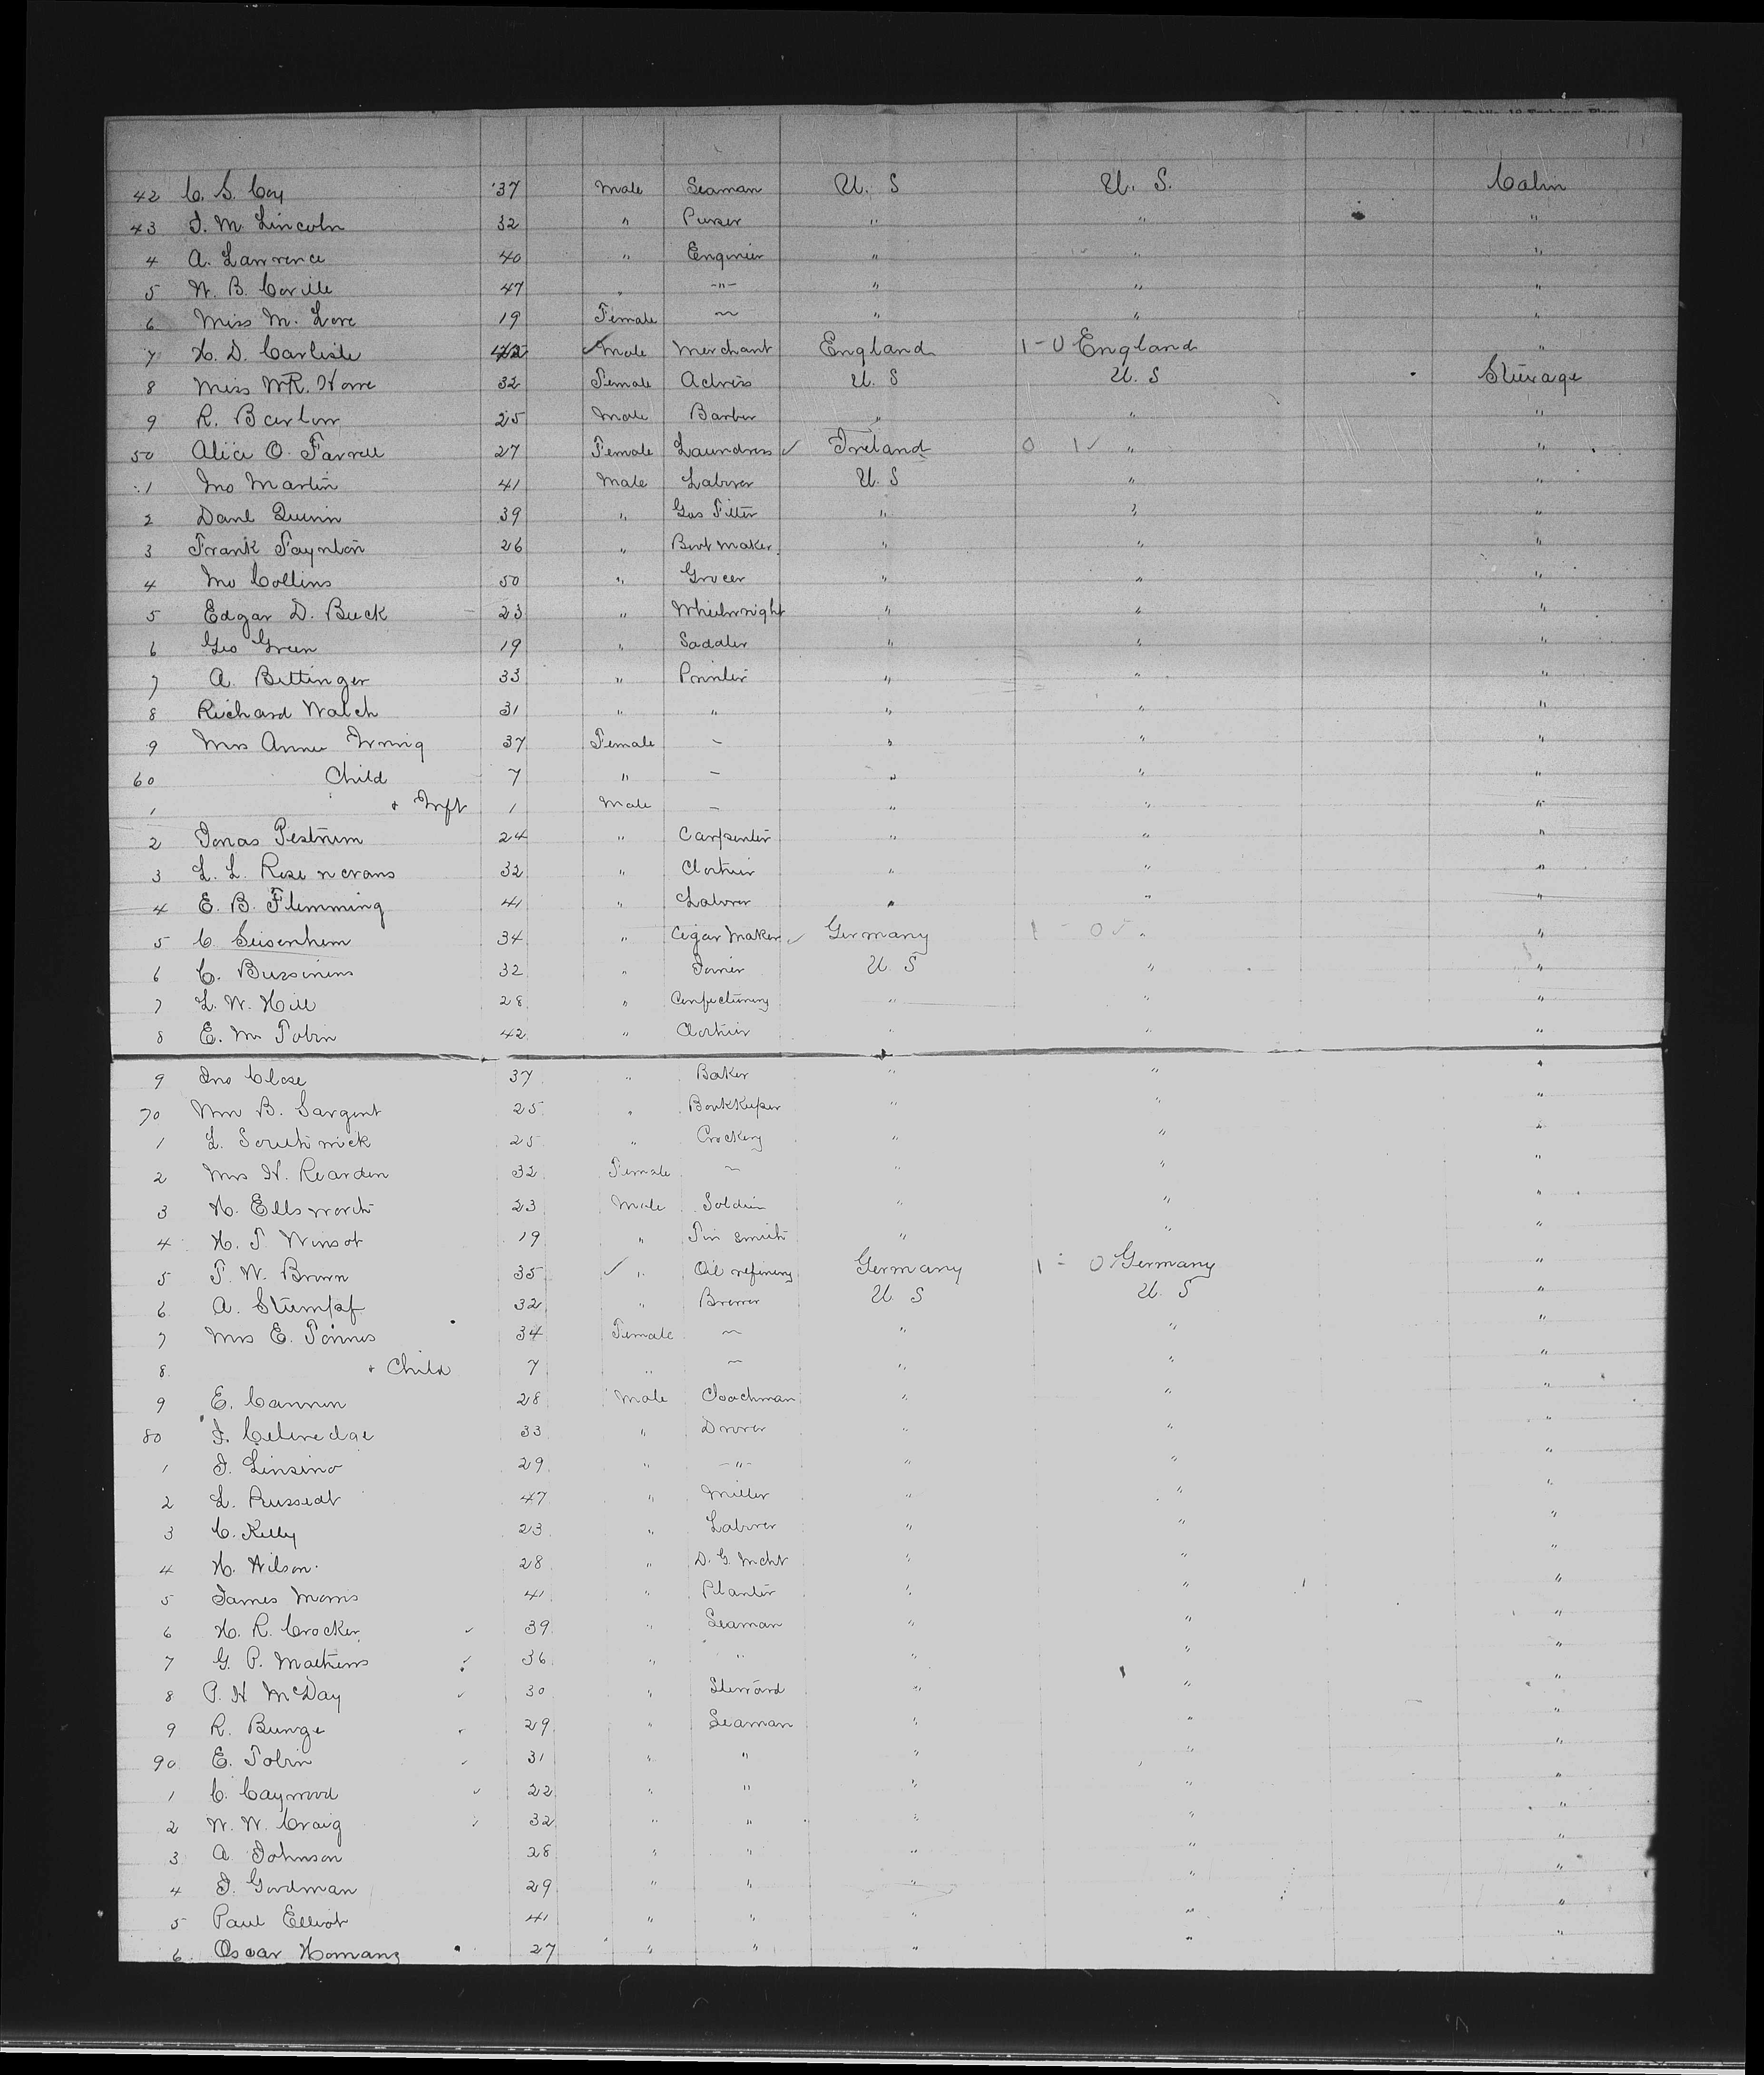 42 C. S. Coy 37 Male Seaman U. S U. S. Cabin
43 J. M. Lincoln 32 " Purser " " "
4 A. Lawrence 40 " Engineer " " "
5 W. B. Corille 47 " -"- " " "
6 Miss M. Love 19 Female ~ " " "
7 H. D. Carlisle 42 ✓ Male Merchant England 1-0 England "
8 Miss M R. Howe 32 Female Actress U. S U. S Steerage
9 R. Barlow 25 Male Barber " " "
50 Alice O. Farrell 27 Female Laundress ✓ Ireland 0 1 ✓ " "
1 Jno Martin 41 Male Laborer U. S " "
2 Danl Quinn 39 " Gas Fitter " " "
3 Frank Paynton 26 " Bootmaker " " "
4 Jno Collins 50 " Grocer " " "
5 Edgar D. Buck 23 " Wheelwright " " "
6 Geo Green 19 " Saddler " " "
7 A. Bettinger 33 " Printer " " "
8 Richard Walch 31 " " " " "
9 Mrs Annie Irving 37 Female - " " "
60 Child 7 " - " " "
1 + Inft 1 Male - " " "
2 Jonas Pestrum 24 " Carpenter " " "
3 L. L. Rosencrans 32 " Clothier " " "
4 E. B. Flemming 41 " Laborer " " "
5 C. Seisenhem 34 " Cigar Maker ✓ Germany 1 - 0 ✓ " "
6 C. Bussinens 32 " Joiner U. S " "
7 L. W. Hill 28 " Confectionery " " "
8 E. M. Tobin 42 " Clothier " " "
9 Jno Close 37 " Baker " " "
70 Wm B. Sargent 25 " Bookkeeper " " "
1 L. Southwick 25 " Crockery " " "
2 Mrs H. Rearden 32 Female ~ " " "
3 H. Ellsworth 23 Male Soldier " " "
4 H. T. Winsot 19 " Tin smith " " "
5 T. W. Brown 35 ✓ " Oil refinery Germany 1 - 0 Germany "
6 A. Stumpf 32 " Brewer U. S U. S "
7 Mrs E. Tonnes 34 Female ~ " " "
8 + Child 7 " ~ " " "
9 E. Cannon 28 Male Coachman " " "
80 J. 33 " Drover " " "
1 J. Linsino 29 " -"- " " "
2 L. Russedt 47 " Miller " " "
3 C. Kelly 23 " Laborer " " "
4 H. Wilson. 28 " D. G. Mcht " " "
5 James Morris 41 " Planter " " "
6 H. R. Crocker ✓ 39 " Seaman " " "
7 G. P. Mathews ✓ 36 " " " " "
8 P. H McDay ✓ 30 " Steward " " "
9 R. Bunge ✓ 29 " Seaman " " "
90 E. Tobin ✓ 31 " " " " "
1 C. Caywood ✓ 22 " " " " "
2 W. W. Craig ✓ 32 " " " " "
3 A. Johnson 28 " " " " "
4 J. Goodman 29 " " " " "
5 Paul Elliot 41 " " " " "
6 Oscar Homang 27 " " " " "